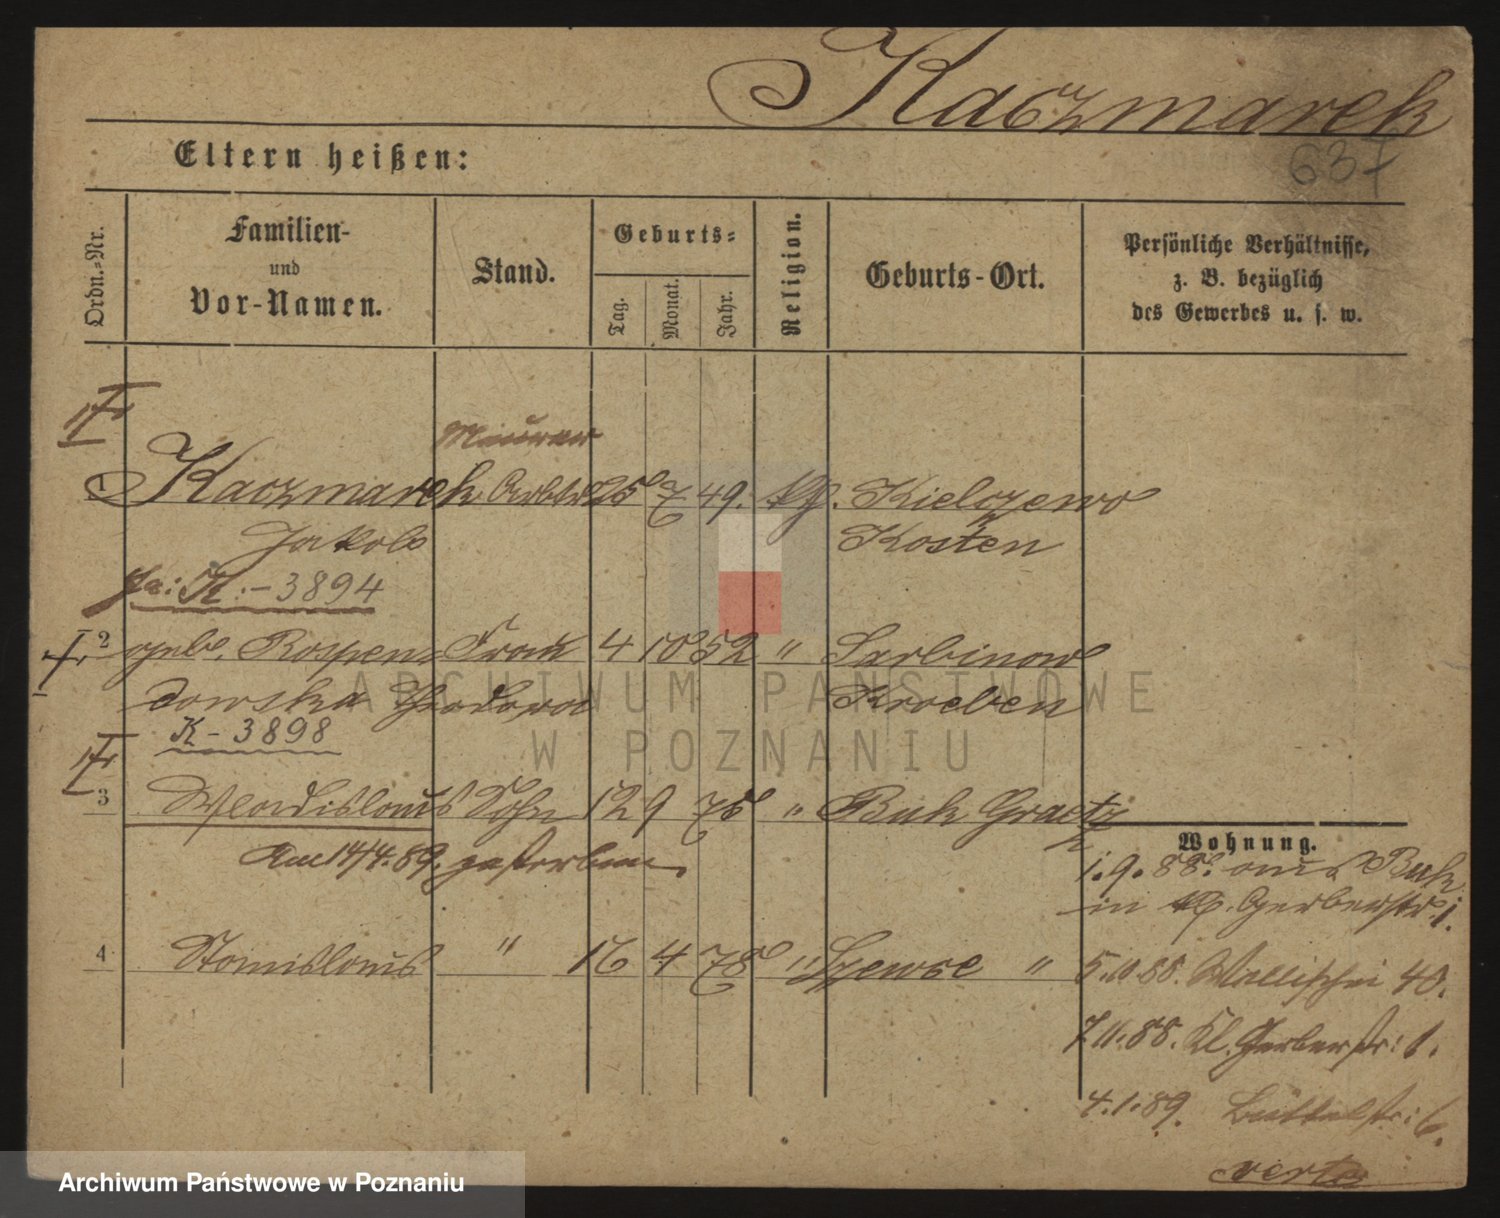 Kaczmarek
637
Eltern heißen:
Ordn.-Nr.
Familien- und Vor-Namen.
Stand.
Geburts-
Tag.
Monat.
Jahr.
Religion.
Geburts-Ort.
Persönliche Verhältnisse,
z. B. bezüglich
des Gewerbes u. s. w.
Maurer
1 Kaczmarek Arbtr 25 7 49. kth. Kielczewo
Jakob Kosten
K.-3894
2 geb. Rospen- Frau 4 10 52 " Sarbinowo
dowska Theodora Kroeben
K-3898
3 Wladislaus Sohn 12 9 75 " Buk Graetz
Am 14/4. 89. gestorben
Wohnung.
1. 9. 88. aus Buk
in Gerberstr. 1.
4 Stanislaus " 16 4 78 " "
5. 10. 88. Wallischei 40.
7. 11. 88. Kl. Gerberstr: 1.
4. 1. 89. Büttelstr: 6.
verte
ARCHIWUM PAŃSTWOWE
W POZNANIU
Archiwum Państwowe w Poznaniu